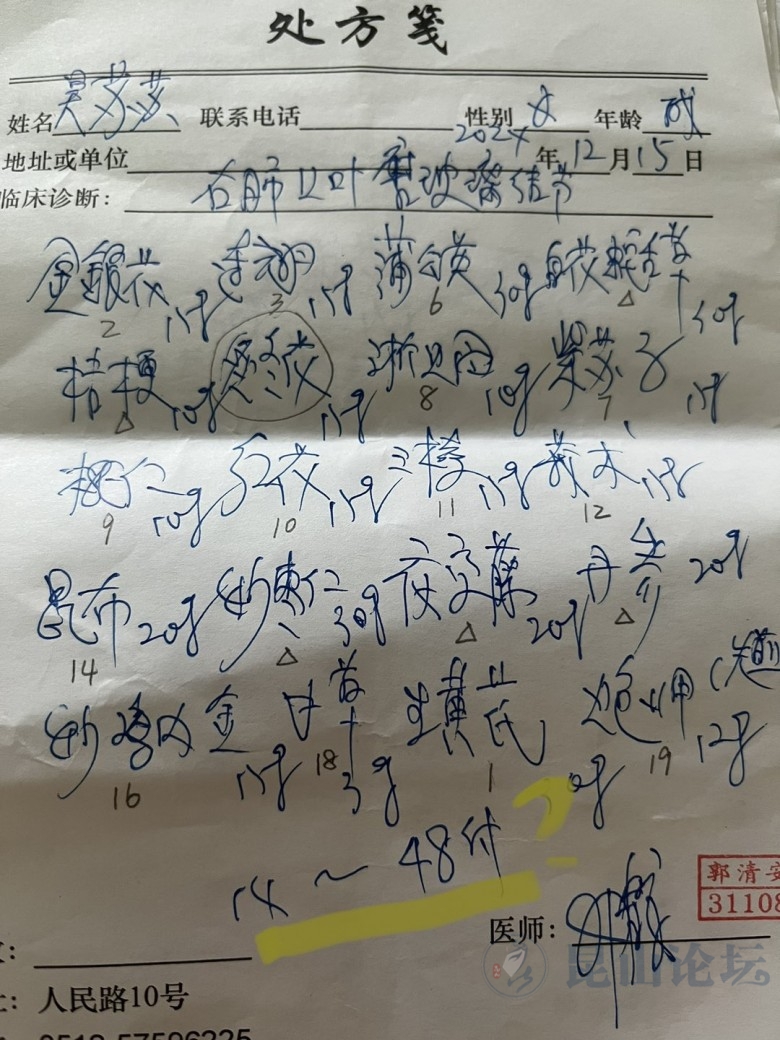 处方笺
姓名 吴苏苏 联系电话 性别 女 年龄 成
地址或单位 2024年12月15日
临床诊断: 右肺上叶磨玻璃结节
金銀花 15g 连翘 15g 蒲公英 30g 白花蛇舌草 30g
2 3 6 △
桔梗 10g 冬花 15g 浙贝母 10g 紫苏子 15g
△ 8 7
桃仁 10g 红花 15g 三棱 15g 莪术 15g
9 10 11 12
昆布 20g 炒枣仁 30g 夜交藤 20g 丹参 20g
14 △ △ △
炒鸡内金 15g 甘草 3g 生黄芪 炮甲(先煎 12g
16 18 1 19
14～48付 ?
郭清安
31108
医师:
人民路10号
0512-57506225
昆山论坛